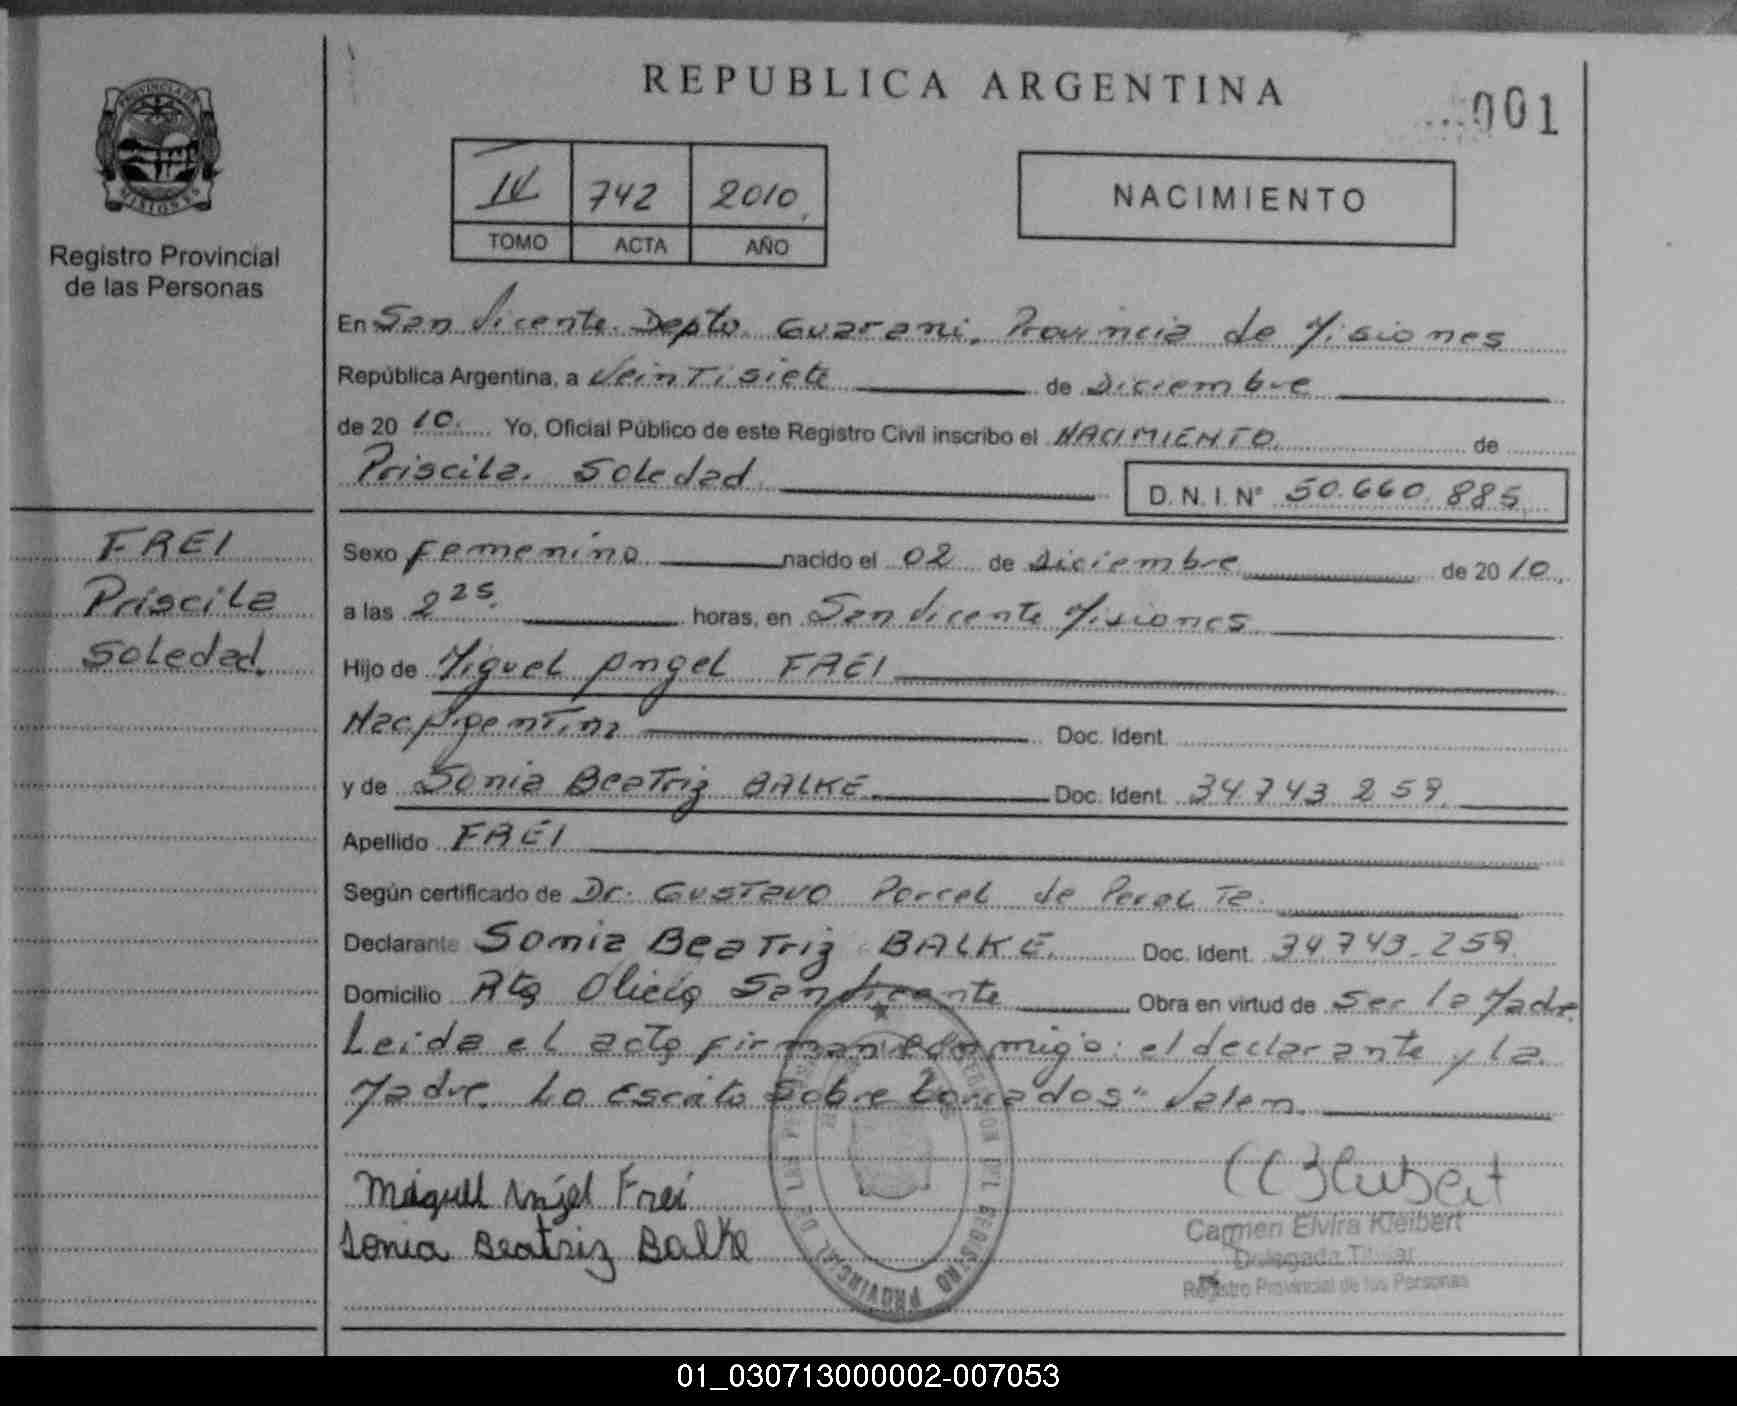 REPUBLICA ARGENTINA
001
PROVINCIA DE
MISIONES
Registro Provincial
de las Personas
IV 742 2010
TOMO ACTA AÑO
NACIMIENTO
En San Vicente Depto Guarani, Provincia de Misiones
República Argentina, a Veintisiete de Diciembre
de 2010. Yo, Oficial Público de este Registro Civil inscribo el NACIMIENTO de
Priscila Soledad
D. N. I. Nº 50.660.885
FREI
Priscila
Soledad.
Sexo Femenino nacido el 02 de Diciembre de 2010
a las 2 25 horas, en San Vicente Misiones
Hijo de Miguel Angel FREI
Nac Argentina Doc. Ident.
y de Sonia Beatriz BALKE Doc. Ident. 34743259
Apellido FREI
Según certificado de Dr. Gustavo Porcel de Peralta
Declarante Sonia Beatriz BALKE. Doc. Ident. 34.743.259
Domicilio San Vicente Obra en virtud de ser la Madre
Leida el acta firman conmigo: el declarante y la
Madre. Lo Escrito sobre borrados" Valen.
Miguel Anjel Frei
Sonia Beatriz Balke
Carmen Elvira Kleibert
Delegada Titular
Registro Provincial de las Personas
01_030713000002-007053